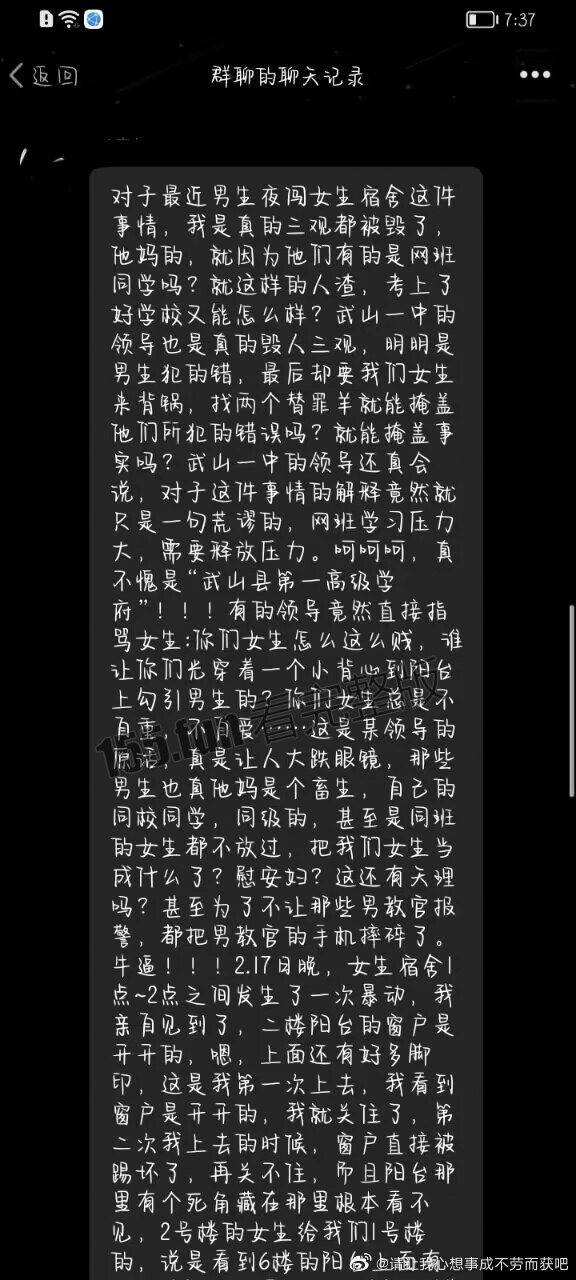 7:37
返回
群聊的聊天记录
对于最近男生夜闯女生宿舍这件
事情，我是真的三观都被毁了，
他妈的，就因为他们有的是网班
同学吗？就这样的人渣，考上了
好学校又能怎么样？武山一中的
领导也是真的毁人三观，明明是
男生犯的错，最后却要我们女生
来背锅，找两个替罪羊就能掩盖
他们所犯的错误吗？就能掩盖事
实吗？武山一中的领导还真会
说，对于这件事情的解释竟然就
只是一句荒谬的，网班学习压力
大，需要释放压力。呵呵呵，真
不愧是“武山县第一高级学
府”！！！有的领导竟然直接指
骂女生:你们女生怎么这么贱，谁
让你们光穿着一个小背心到阳台
上勾引男生的？你们女生总是不
自重，不自爱……这是某领导的
原话，真是让人大跌眼镜，那些
男生也真他妈是个畜生，自己的
同校同学，同级的，甚至是同班
的女生都不放过，把我们女生当
成什么了？慰安妇？这还有天理
吗？甚至为了不让那些男教官报
警，都把男教官的手机摔碎了。
牛逼！！！2.17日晚，女生宿舍1
点~2点之间发生了一次暴动，我
亲自见到了，二楼阳台的窗户是
开开的，嗯，上面还有好多脚
印，这是我第一次上去，我看到
窗户是开开的，我就关住了，第
二次我上去的时候，窗户直接被
踢坏了，再关不住，而且阳台那
里有个死角藏在那里根本看不
见，2号楼的女生给我们1号楼
的，说是看到6楼的阳台上面有
155.fun看完整版
@请让我心想事成不劳而获吧